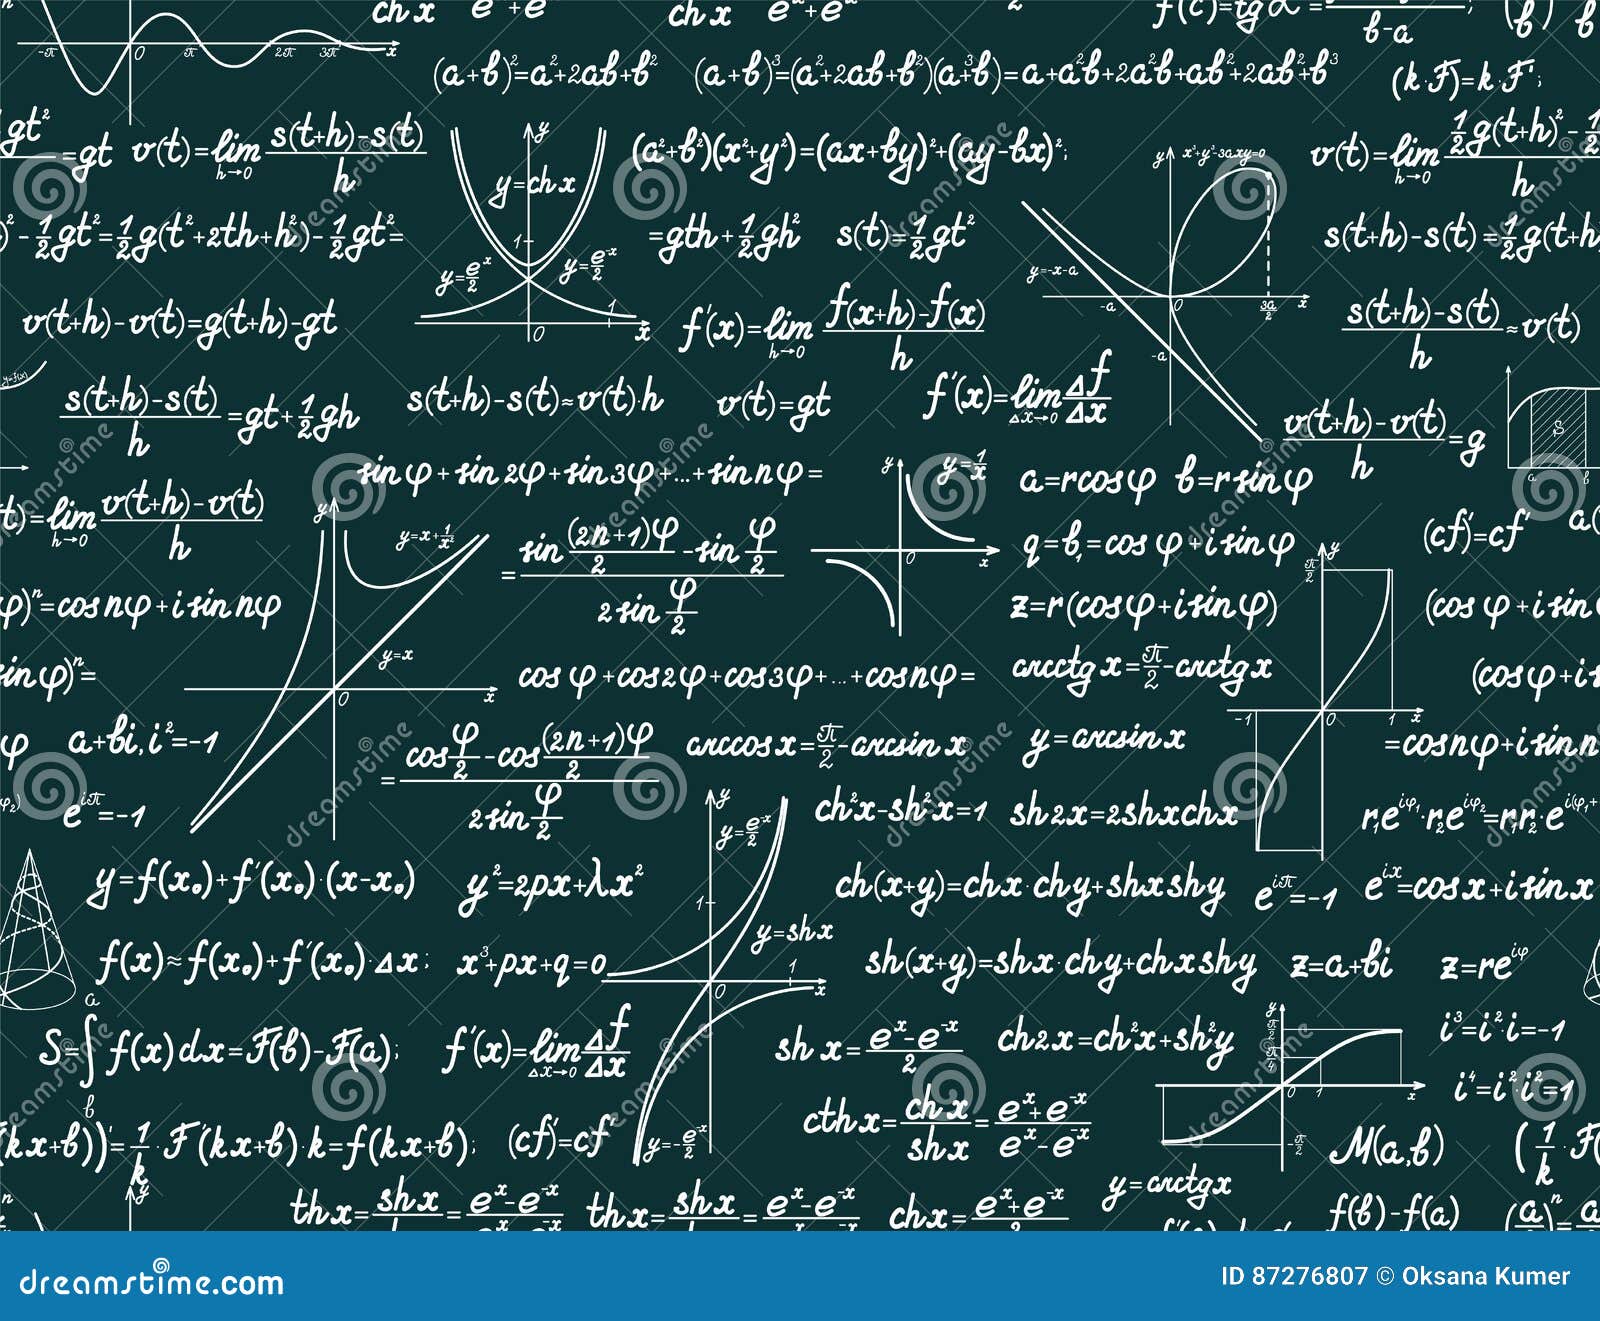 ch x    e^x+e^-x    ch x    e^x+e^-x    2    f'(c)=tg α = ——/(b-a);
-π  0  π  2π  3π  x
(a+b)^2=a^2+2ab+b^2    (a+b)^3=(a^2+2ab+b^2)(a+b)=a^3+a^2b+2a^2b+ab^2+2ab^2+b^3    (k·F)'=k·F';
gt^2 =gt    v(t)=lim_{h→0} (s(t+h)-s(t))/h    y    y=ch x    (a^2+b^2)(x^2+y^2)=(ax+by)^2+(ay-bx)^2;    y    x^3+y^3-3axy=0    v(t)=lim_{h→0} (1/2 g(t+h)^2-1/2)/h
)^2-1/2 gt^2=1/2 g(t^2+2th+h^2)-1/2 gt^2=    1    y=e^x/2    y=e^-x/2    0  1  x    =gth+1/2 gh^2    s(t)=1/2 gt^2    y=-x-a    -a  0  3a/2  x  -a    s(t+h)-s(t)=1/2 g(t+h
v(t+h)-v(t)=g(t+h)-gt    f'(x)=lim_{h→0} (f(x+h)-f(x))/h    (s(t+h)-s(t))/h≈v(t)
y=f(x)    (s(t+h)-s(t))/h=gt+1/2 gh    s(t+h)-s(t)≈v(t)·h    v(t)=gt    f'(x)=lim_{Δx→0} Δf/Δx    (v(t+h)-v(t))/h=g    S  a  b
t)=lim_{h→0} (v(t+h)-v(t))/h    sin φ+sin 2φ+sin 3φ+...+sin nφ=    y  y=1/x  0  x    a=r cos φ  b=r sin φ    (cf)'=cf'    a(
y  y=x+1/x^2  y=x  0  x    =(sin (2n+1)φ/2 -sin φ/2)/(2 sin φ/2)    q=b_1=cos φ+i sin φ    π/2  y  -1  0  1  x
φ)^n=cos nφ+i sin nφ    z=r(cos φ+i sin φ)    (cos φ+i sin
sin φ)^n=    cos φ+cos 2φ+cos 3φ+...+cos nφ=    arcctg x=π/2-arctg x    (cos φ+i s
φ    a+bi, i^2=-1    =(cos φ/2 -cos (2n+1)φ/2)/(2 sin φ/2)    arccos x=π/2-arcsin x    y=arcsin x    =cos nφ+i sin n
φ_2)    e^{iπ}=-1    y  y=e^x/2  1  y=sh x  0  1  x  y=-e^-x/2    ch^2x-sh^2x=1    sh 2x=2sh x ch x    r_1e^{iφ_1}·r_2e^{iφ_2}=r_1r_2·e^{i(φ_1+
y=f(x_0)+f'(x_0)·(x-x_0)    y^2=2px+λx^2    ch(x+y)=ch x·ch y+sh x sh y    e^{iπ}=-1    e^{ix}=cos x+i sin x
f(x)≈f(x_0)+f'(x_0)·Δx;    x^3+px+q=0    sh(x+y)=sh x·ch y+ch x sh y    z=a+bi    z=re^{iφ}
S=∫ f(x)dx=F(b)-F(a);  a  b    f'(x)=lim_{Δx→0} Δf/Δx    sh x=(e^x-e^-x)/2    ch 2x=ch^2x+sh^2y    y  π/2  π/4  0  1  x  -π/2    i^3=i^2·i=-1
i^4=i^2·i^2=1
(kx+b))'=1/k·F'(kx+b)·k=f(kx+b);    (cf)'=cf'    cth x=ch x/sh x=(e^x+e^-x)/(e^x-e^-x)    M(a,b)    (1/k·F(
n    y    th x=sh x/=(e^x-e^-x)/(e^x+e^-x)    th x=sh x/=(e^x-e^-x)/    ch x=(e^x+e^-x)/2    y=arctg x    f(b)-f(a)    (a)^n=a
dreamstime.com    ID 87276807 © Oksana Kumer